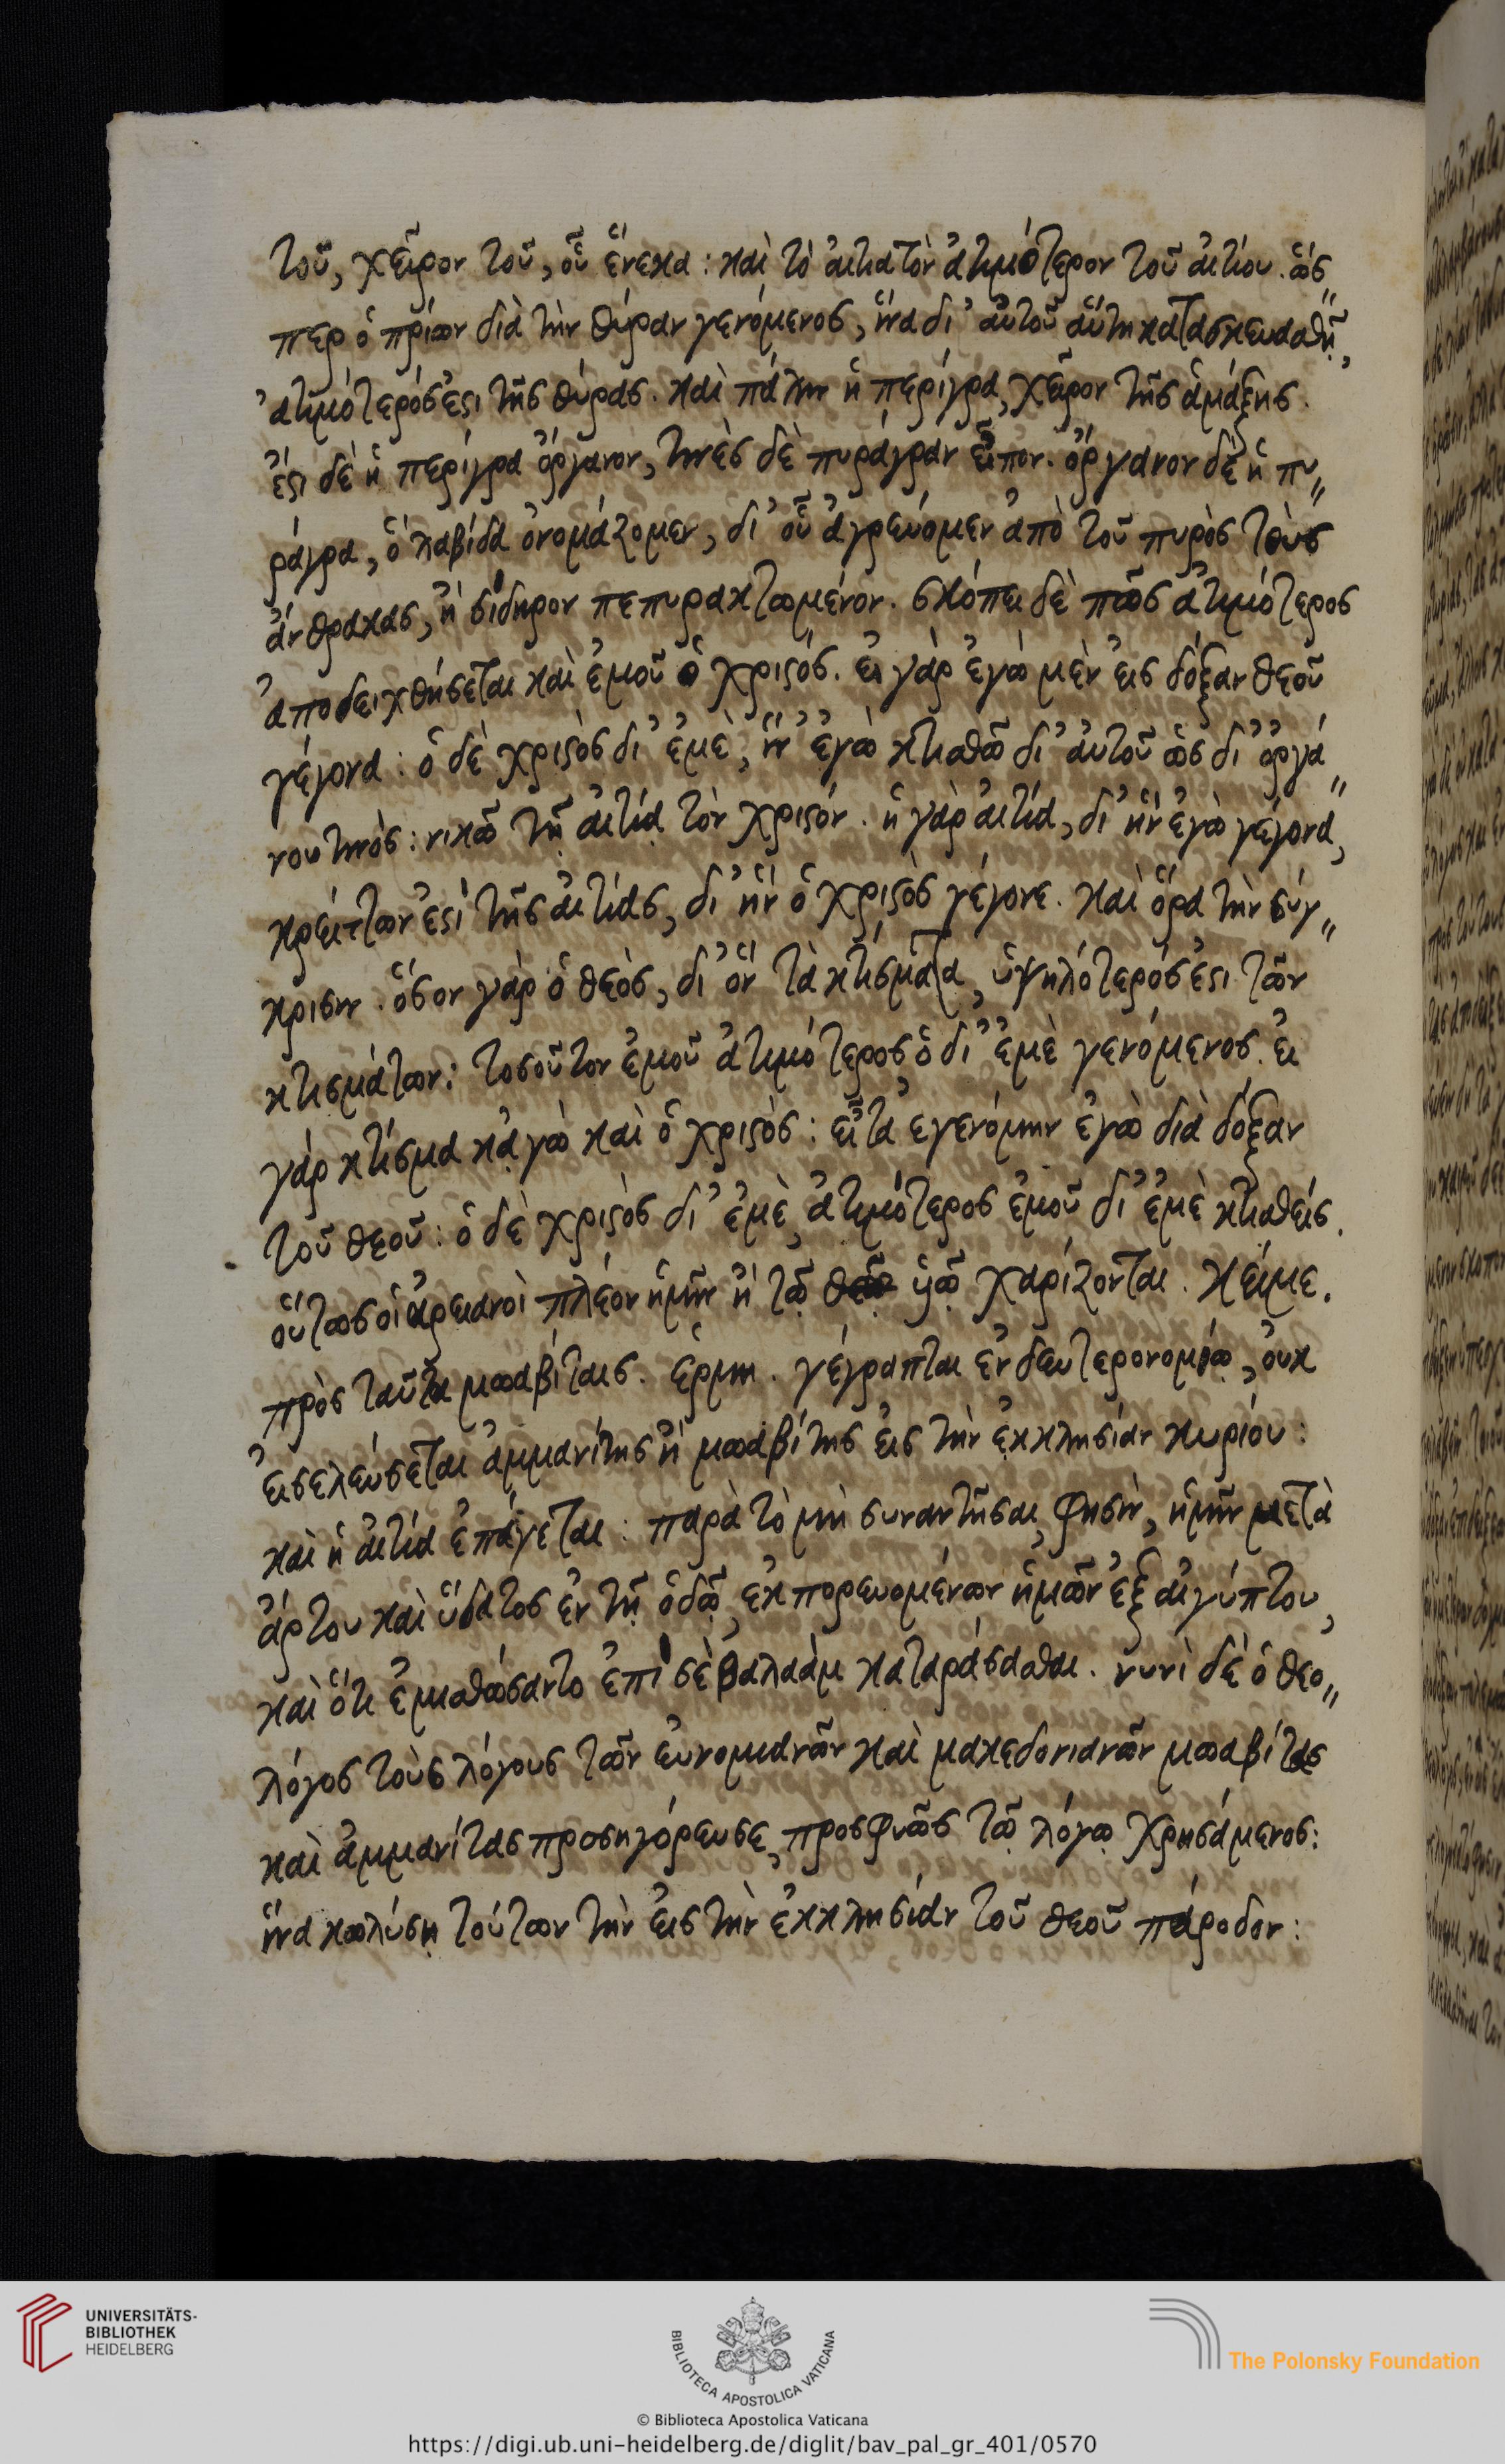 τοῦ, χεῖρον τοῦ, οὗ ἕνεκα: καὶ τὸ αἰτιατὸν ἀτιμότερον τοῦ αἰτίου. ὥσ"
περ ὁ πρίων διὰ τὴν θύραν γενόμενος, ἵνα δι' αὐτοῦ αὕτη κατασκευασθῇ,
ἀτιμότερός ἐστι τῆς θύρας. καὶ πάλιν ἡ περίγρα, χεῖρον τῆς ἁμάξης.
ἔστι δὲ ἡ περίγρα ὄργανον, τινὲς δὲ πυράγραν εἶπον. ὄργανον δὲ ἡ πυ"
ράγρα, ὃ λαβίδα ὀνομάζομεν, δι' οὗ ἀγρεύομεν ἀπὸ τοῦ πυρὸς τοὺς
ἄνθρακας, ἢ σίδηρον πεπυρακτωμένον. σκόπει δὲ πῶς ἀτιμότερος
ἀποδειχθήσεται καὶ ἐμοῦ ὁ χριστός. εἰ γὰρ ἐγὼ μὲν εἰς δόξαν θεοῦ
γέγονα: ὁ δὲ χριστὸς δι' ἐμὲ, ἵν' ἐγὼ κτισθῶ δι' αὐτοῦ ὡς δι' ὀργά"
νου τινός: νικῶ τῇ αἰτίᾳ τὸν χριστόν. ἡ γὰρ αἰτία, δι' ἣν ἐγὼ γέγονα,
κρείττων ἐστὶ τῆς αἰτίας, δι' ἣν ὁ χριστὸς γέγονε. καὶ ὅρα τὴν σύγ"
κρισιν. ὅσον γὰρ ὁ θεὸς, δι' ὃν τὰ κτίσματα, ὑψηλότερός ἐστι τῶν
κτισμάτων: τοσοῦτον ἐμοῦ ἀτιμότερος ὁ δι' ἐμὲ γενόμενος. εἰ
γὰρ κτίσμα κἀγὼ καὶ ὁ χριστὸς: εἶτα ἐγενόμην ἐγὼ διὰ δόξαν
τοῦ θεοῦ: ὁ δὲ χριστὸς δι' ἐμὲ, ἀτιμότερος ἐμοῦ δι' ἐμὲ κτισθείς.
οὕτως οἱ ἀρειανοὶ πλέον ἡμῖν ἢ τῷ θεῷ υἱῷ χαρίζονται. κείμε.
πρὸς ταῦτα μωαβίταις. ἑρμη. γέγραπται ἐν δευτερονομίῳ, οὐκ
εἰσελεύσεται ἀμμανίτης ἢ μωαβίτης εἰς τὴν ἐκκλησίαν κυρίου:
καὶ ἡ αἰτία ἐπάγεται: παρὰ τὸ μὴ συναντῆσαι, φησὶν, ἡμῖν μετὰ
ἄρτου καὶ ὕδατος ἐν τῇ ὁδῷ, ἐκπορευομένων ἡμῶν ἐξ αἰγύπτου,
καὶ ὅτι ἐμισθώσαντο ἐπὶ σὲ βαλαὰμ καταράσασθαι. νυνὶ δὲ ὁ θεο"
λόγος τοὺς λόγους τῶν εὐνομιανῶν καὶ μακεδονιανῶν μωαβίτας
καὶ ἀμμανίτας προσηγόρευσε, προσφυῶς τῷ λόγῳ χρησάμενος:
ἵνα κωλύσῃ τούτων τὴν εἰς τὴν ἐκκλησίαν τοῦ θεοῦ πάροδον:
UNIVERSITÄTS-
BIBLIOTHEK
HEIDELBERG
BIBLIOTECA APOSTOLICA VATICANA
The Polonsky Foundation
© Biblioteca Apostolica Vaticana
https://digi.ub.uni-heidelberg.de/diglit/bav_pal_gr_401/0570